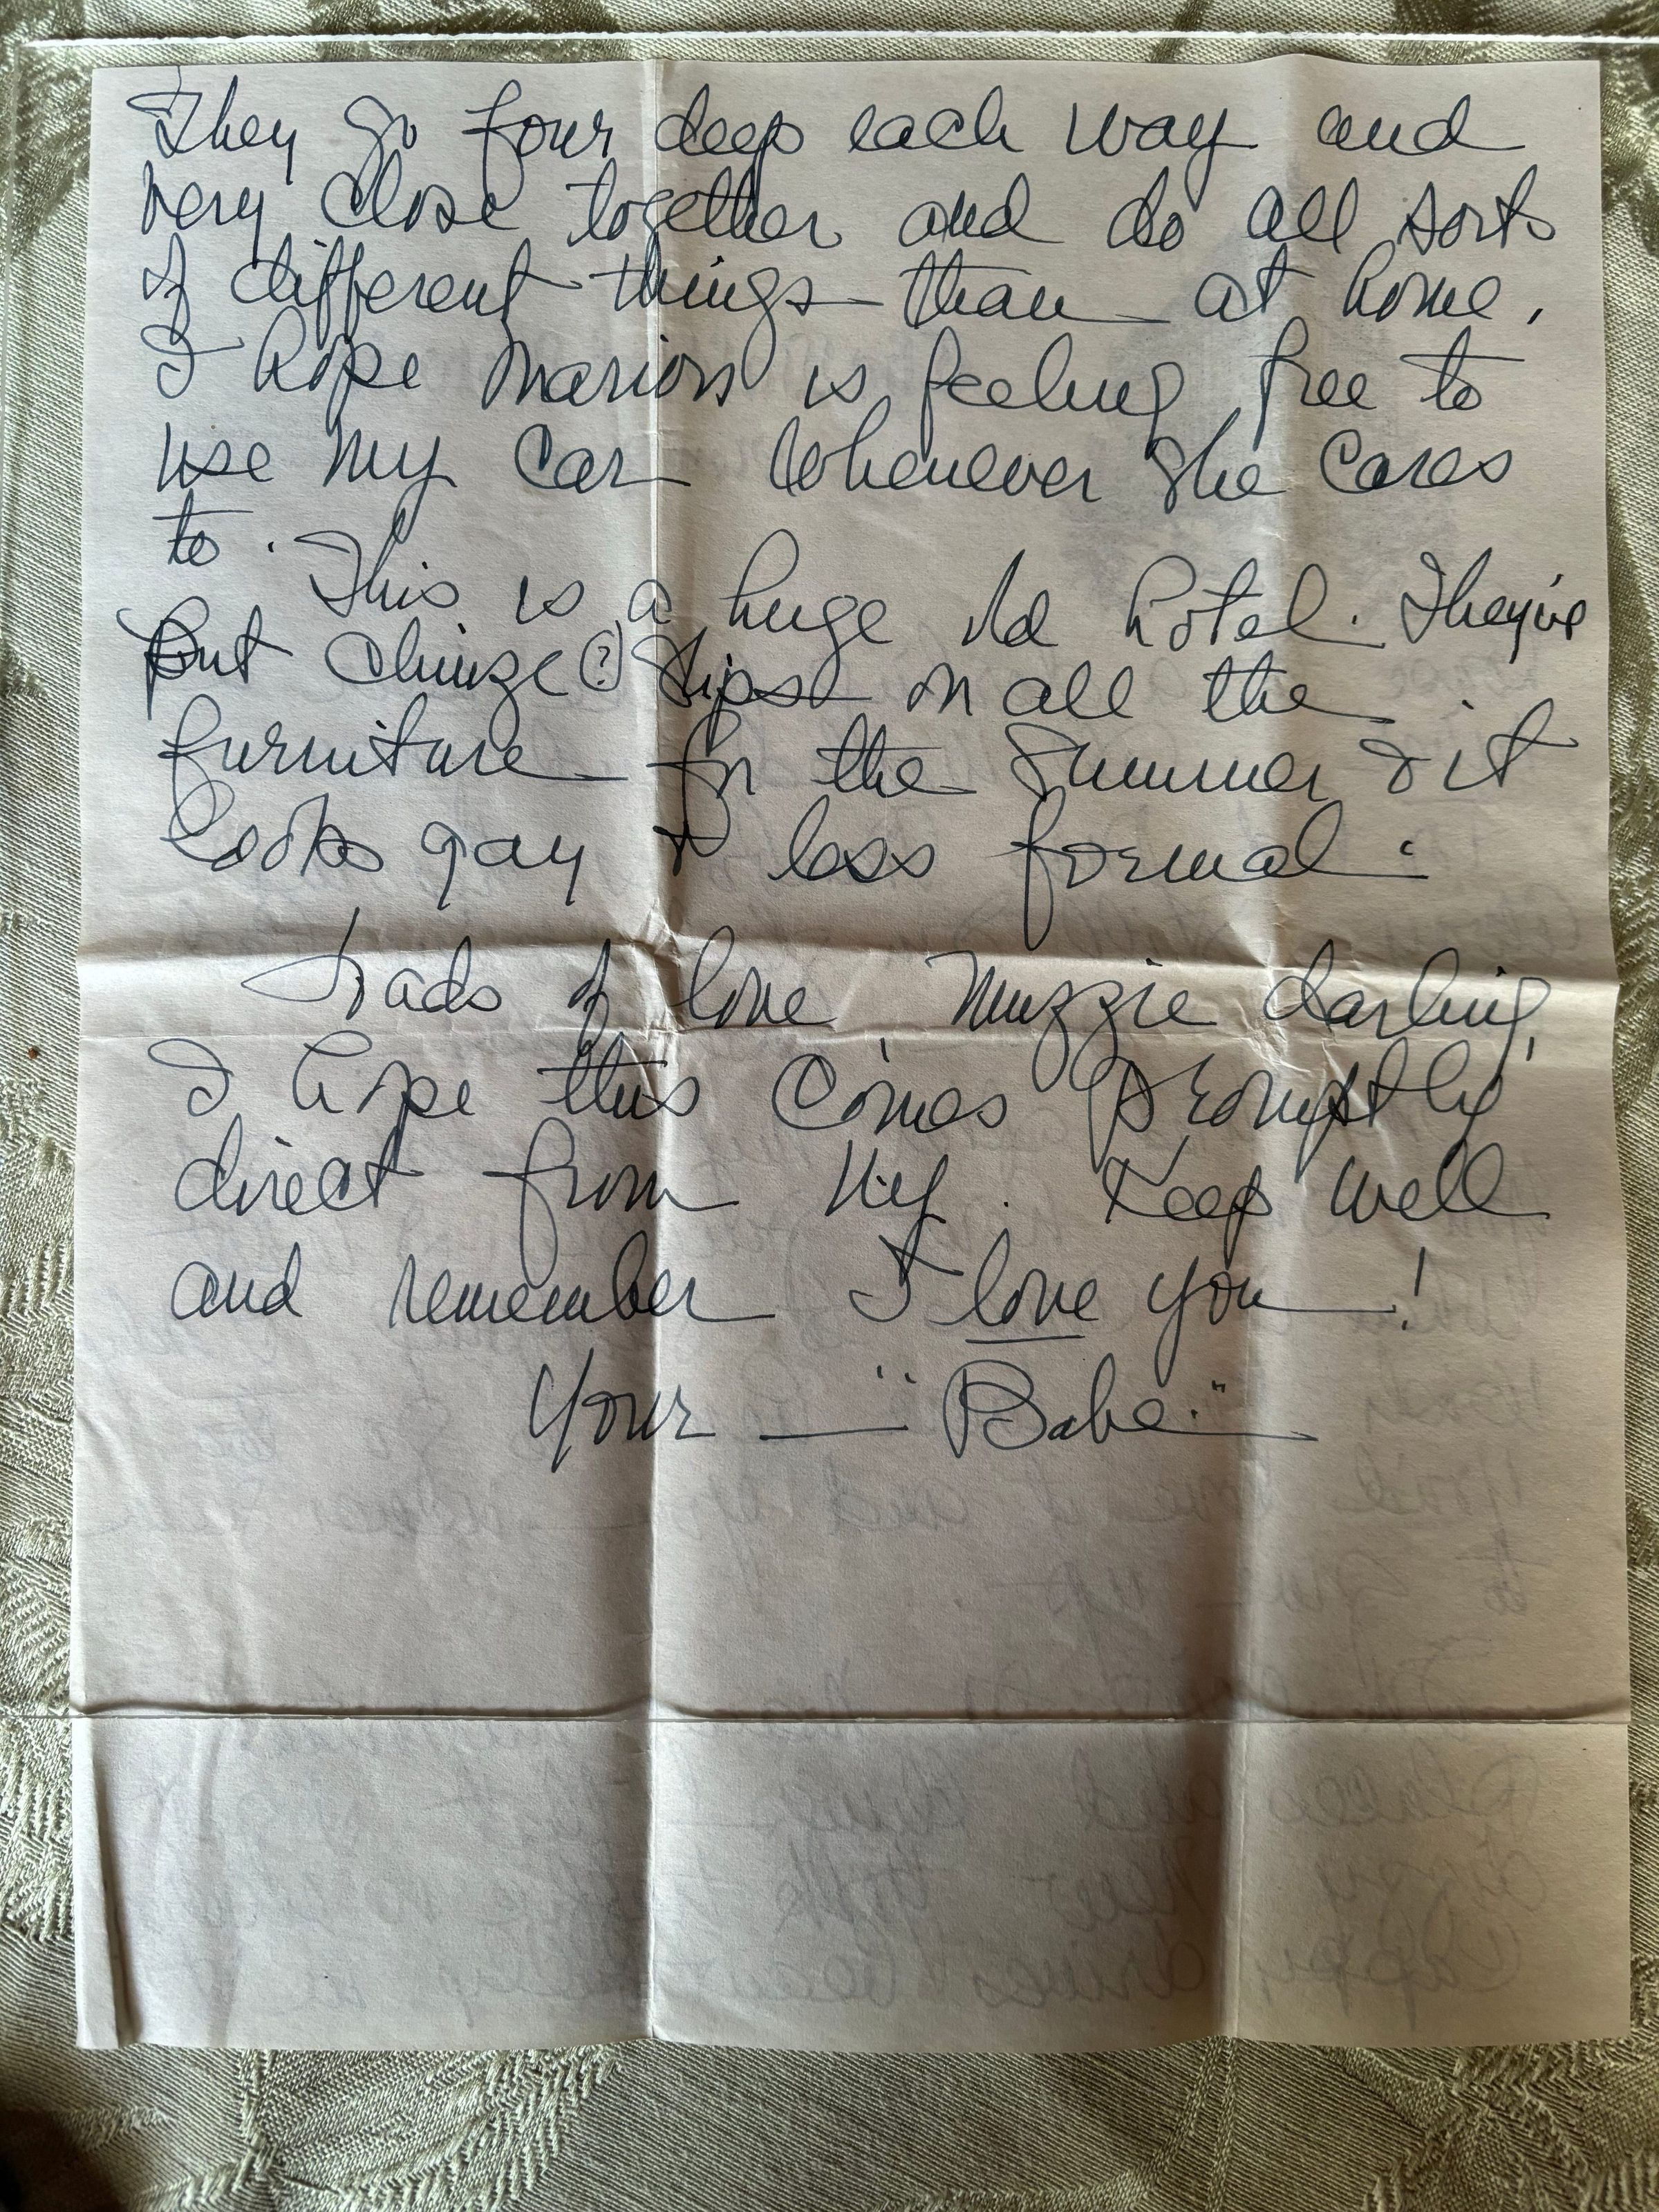 They go four deep each way and
very close together and do all sorts
of different things than at home.
I hope Marion is feeling free to
use my car whenever she cares
to.
This is a huge old hotel. They've
put chinze (?) slips on all the
furniture for the summer & it
looks gay & less formal.
Loads of love Muzzie darling,
I hope this comes promptly
direct from N.Y. Keep well
and remember I love you!
Your "Babe."